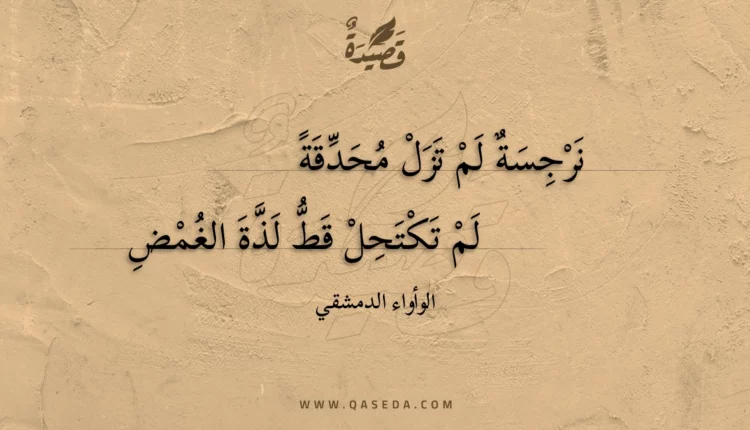 قَصِيْدَةٌ
نَرْجِسَةٌ لَمْ تَزَلْ مُحَدِّقَةً
لَمْ تَكْتَحِلْ قَطُّ لَذَّةَ الغُمْضِ
الوأواء الدمشقي
WWW.QASEDA.COM